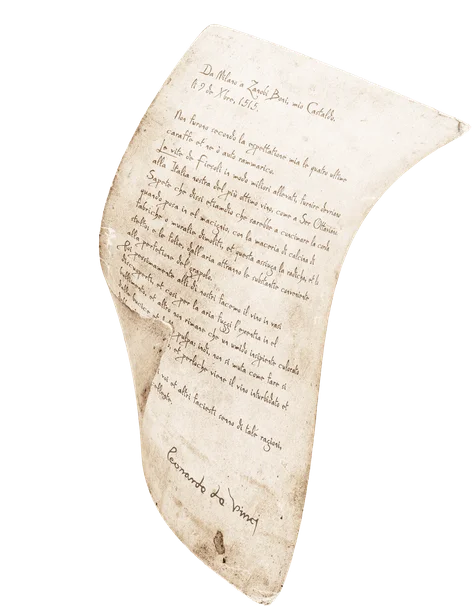 Da Milano a Zanobi Boni, mio Castaldo.
li 9 de Xbre, 1515.
Non furono secondo la espettatione mia le quatro ultime
caraffe et ne ò auto rammarico.
Le vite de Fiesoli in modo migliori allevate, furnire devriano
alla Italia nostra del più ottimo vino, come a Ser Ottaviano.
Sapete che dissi etiandio che sarebbe a concimare la corda
quando posa in el macignio, con la maceria di calcina di
fabriche o muralie demolite, et questa asciuga la radicha, et lo
stelo, e le folie dall'aria attranno le substantie conveniente
alla perfetione del grapolo.
Poi pessimamente alli dì nostri facemo il vino in vasi
et così per la aria fuggi l'exentia in el
et altro non rimane che un umido insipiente culorato
non si muta come fare si
et perloche viene il vino intorbidato et
et altri faciesti senno di tale ragioni,
Leonardo da Vinci